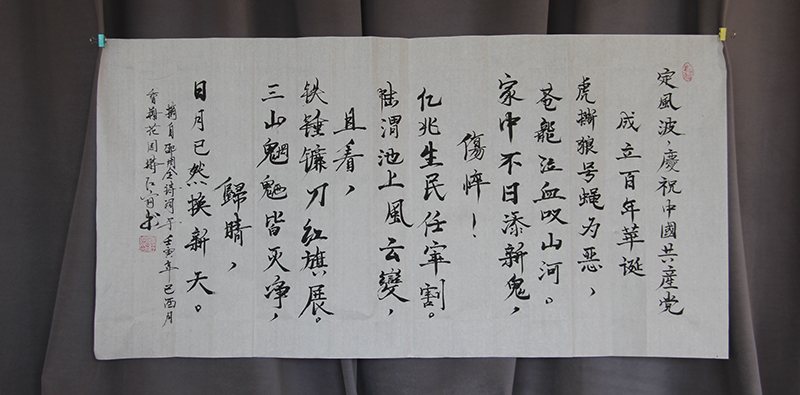 定風波、慶祝中國共産党
成立百年華誕
虎撕狼号蝇为恶，
苍龍泣血叹山河。
家中不日添新鬼，
傷悴！
亿兆生民任宰割。
陡渭池上風云變，
且看，
铁锤镰刀红旗展。
三山魍魉皆灭净，
歸晴，
日月已然换新天。
摘自 壬寅年己酉月
书